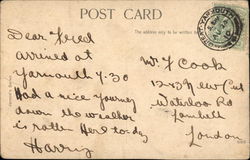 POST CARD
The address only to be written
Dear Fred
arrived at
Yarmouth 7-30
Had a nice journey
down the weather
is rotten Here to-day
Harry
W. Cook
New Cut
Waterloo Rd
Lambeth
London
YARMOUTH